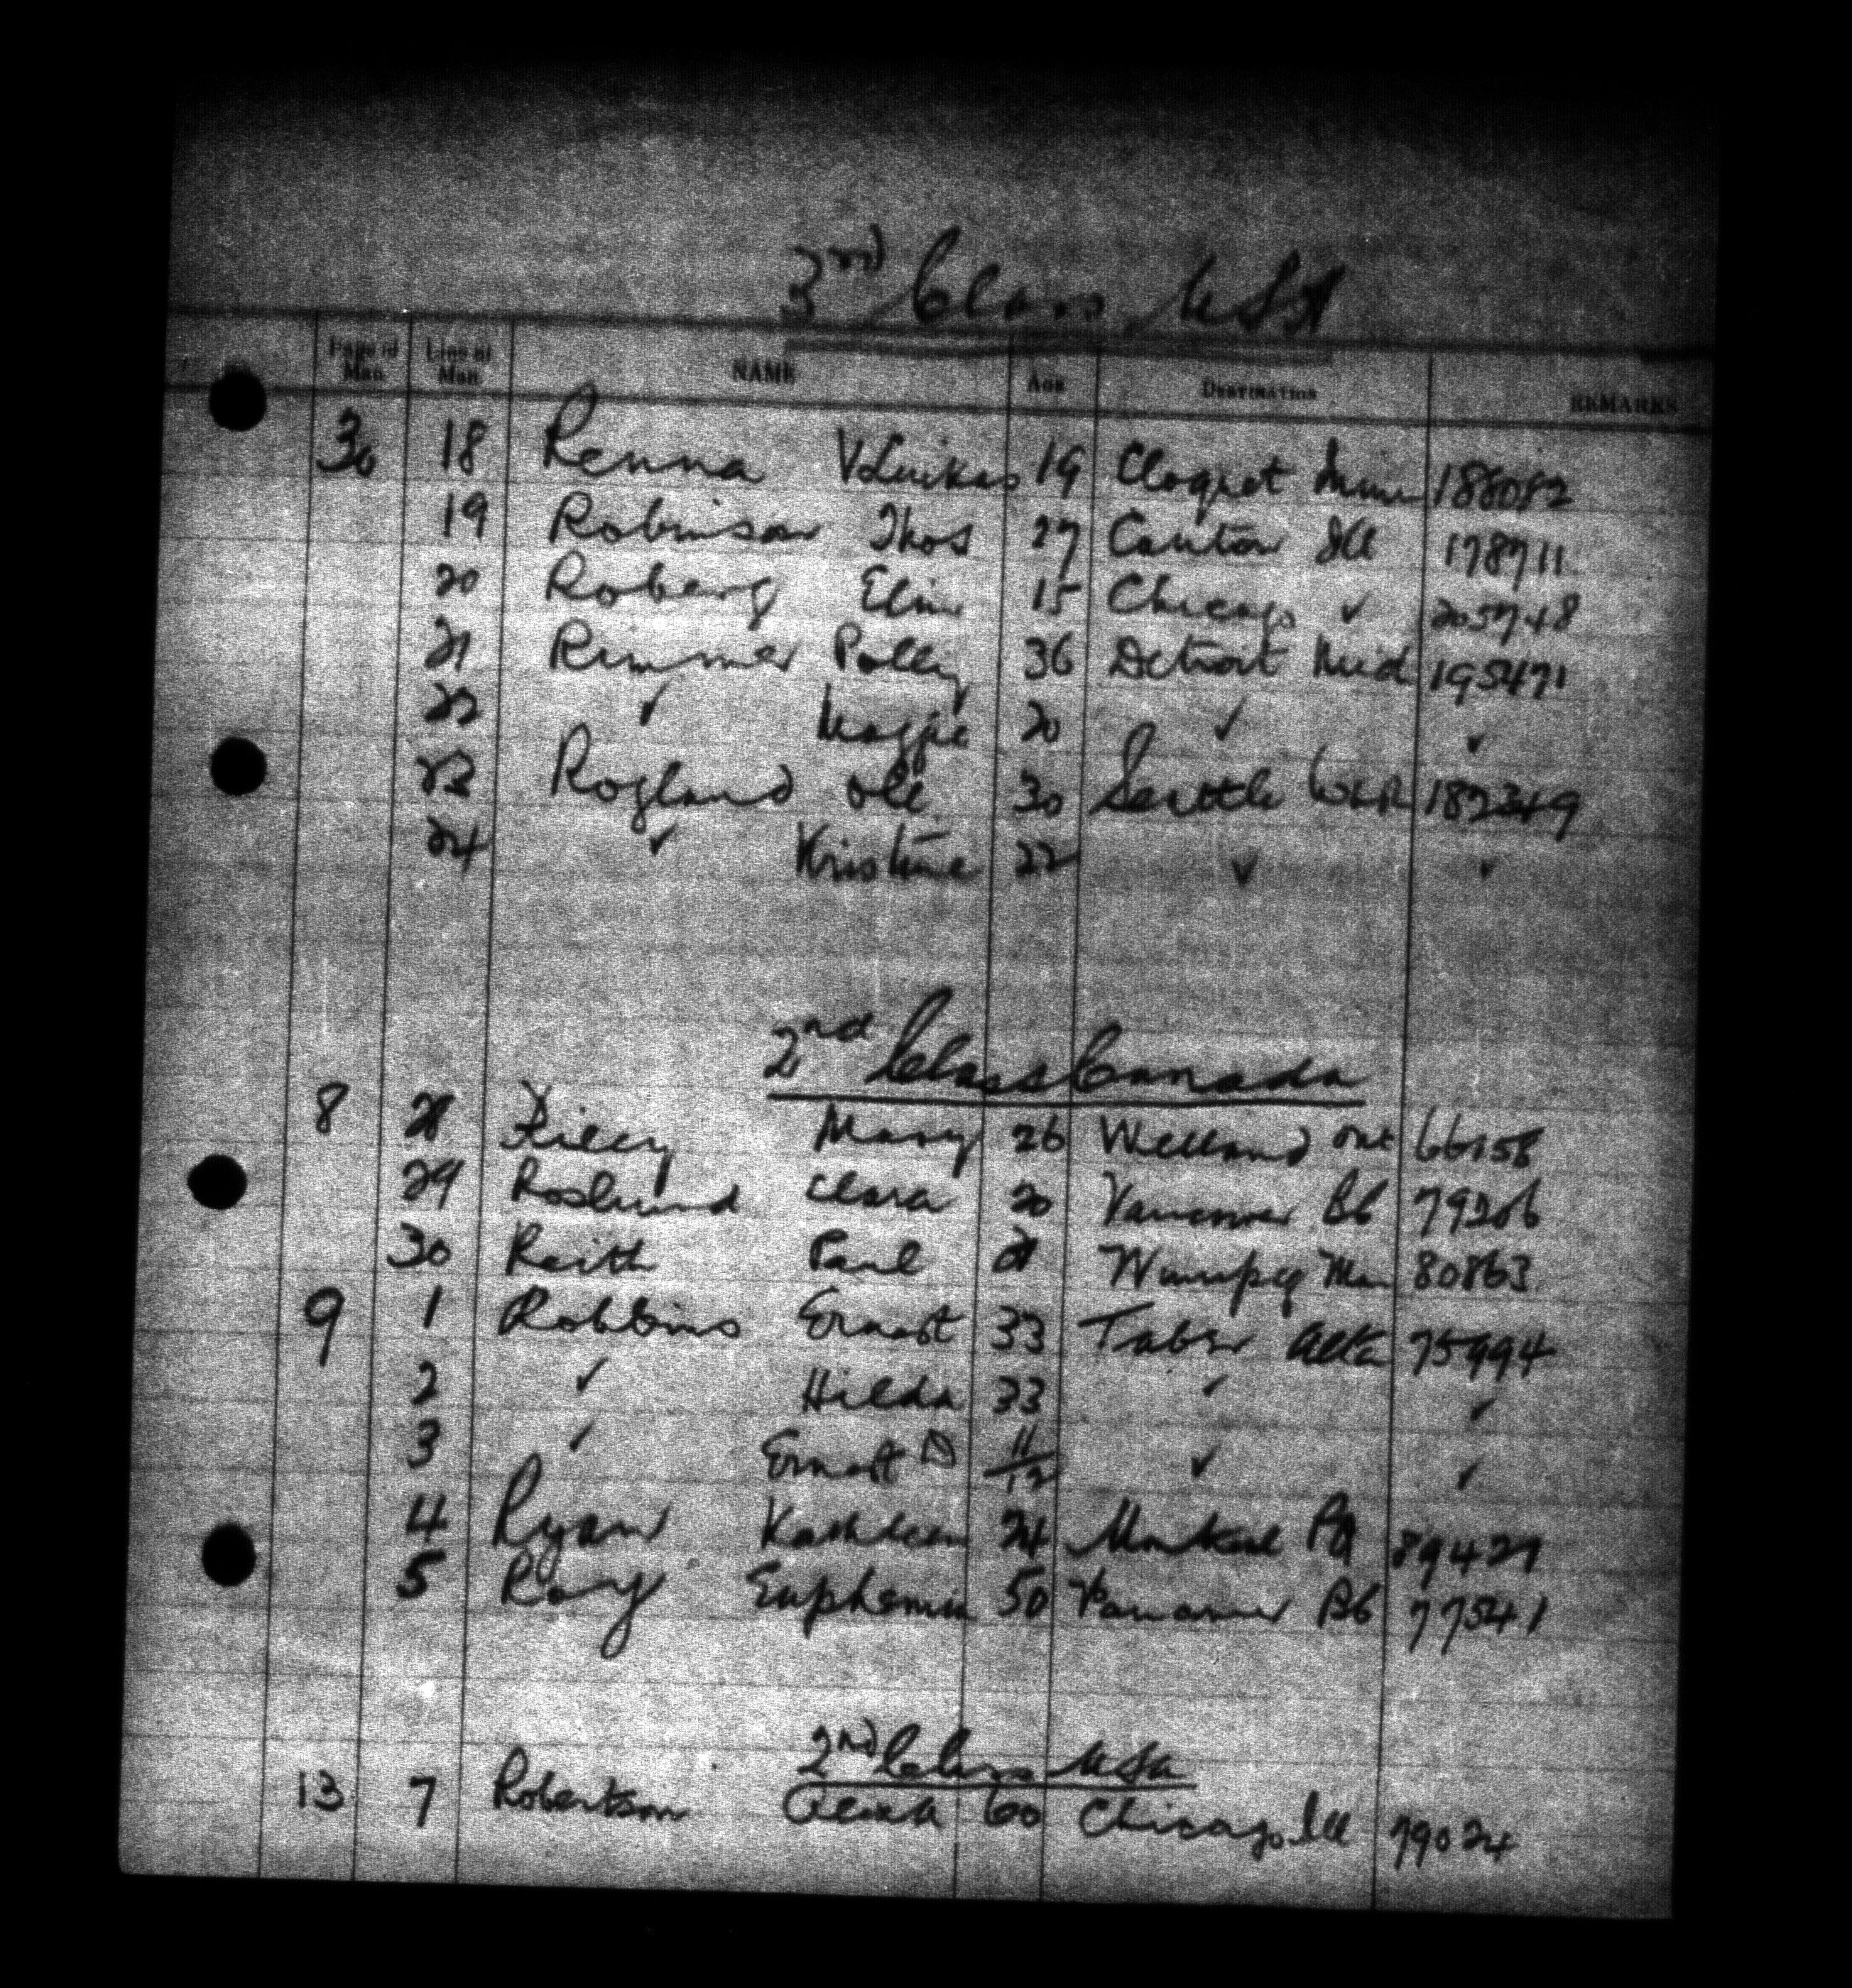 3rd Class USA
Page of Man. Line of Man. NAME AGE DESTINATION REMARKS
30 18 Renna 19 Cloquet Minn 188082
19 Robinson Thos 27 Canton Ill 178711
20 Roberg Elin 15 Chicago ✓ 205748
21 Rimmer Polly 36 Detroit Mid 195471
22 ✓ 20 ✓ ✓
23 Rogland Ole 30 Seattle 187349
24 ✓ Kristine 22 ✓ ✓
2nd Class Canada
8 28 Riley Mary 26 Welland Ont 66158
29 Roslund Clara 20 Vancouver BC 79206
30 Reith Paul 21 Winnipeg Man 80863
9 1 Robbins Ernest 33 Taber Alta 75994
2 ✓ Hilda 33 ✓ ✓
3 ✓ Ernest D 11/12 ✓ ✓
4 Ryan Kathleen 24 Montreal PQ 89421
5 Roy Euphemia 50 Vancouver BC 77541
2nd Class USA
13 7 Robertson 60 Chicago Ill 79024